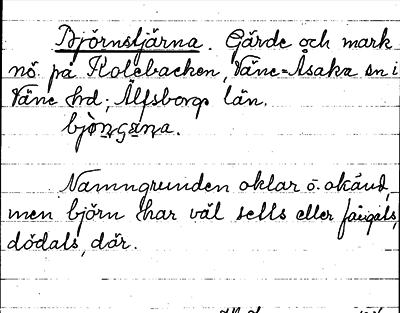 Björnstjärna. Gärde och mark
nö. på Kolebacken, Väne-Åsaka sn i
Väne hd; Älfsborgs län.
bjo̩ŋsa̩na.
Namngrunden oklar o. okänd,
men björn har väl setts eller fångats,
dödats, där.